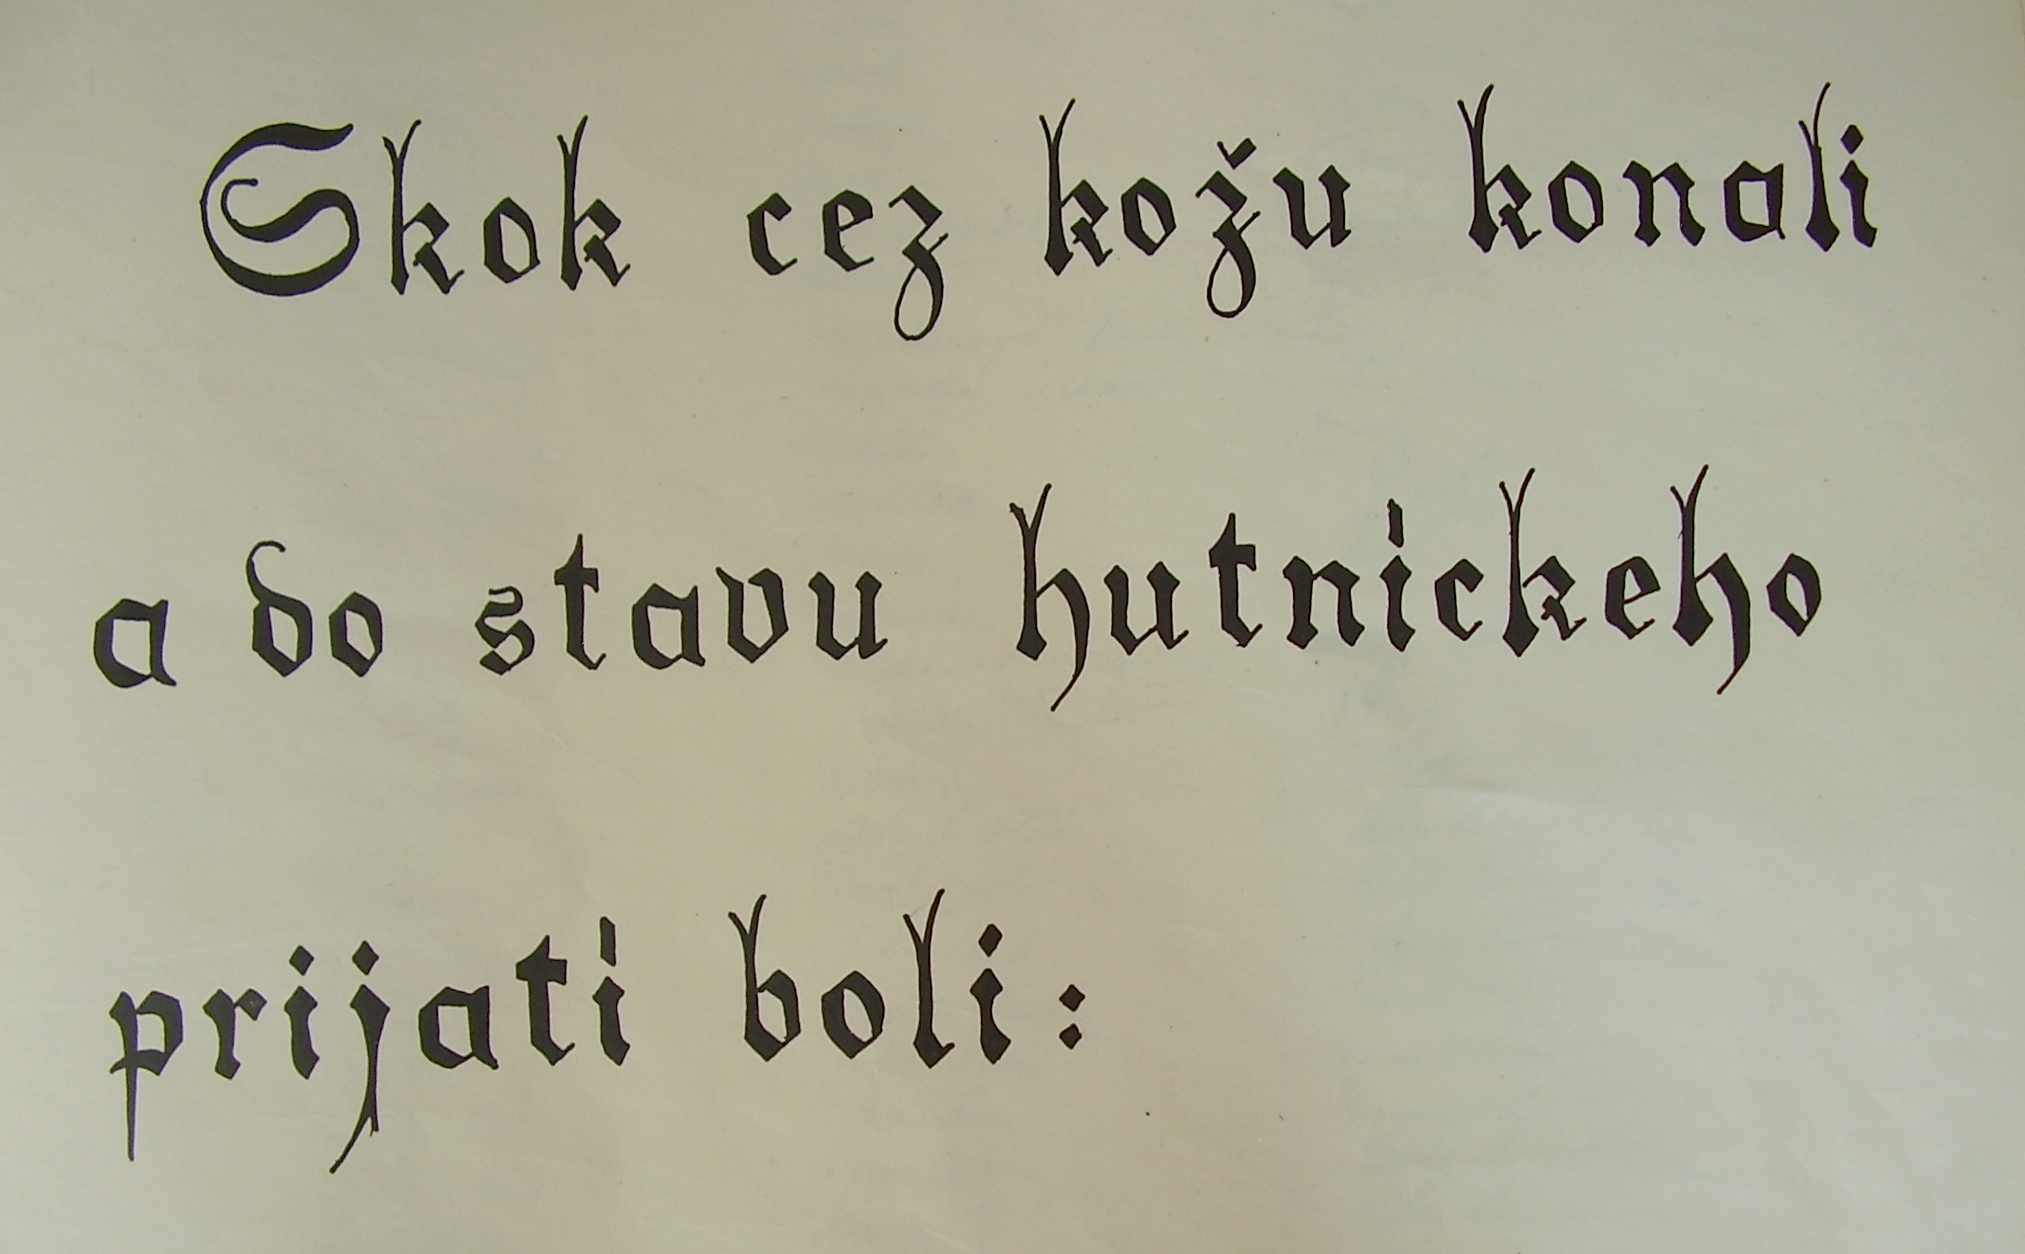 Skok cez kožu konali
a do stavu hutníckeho
prijatí boli: